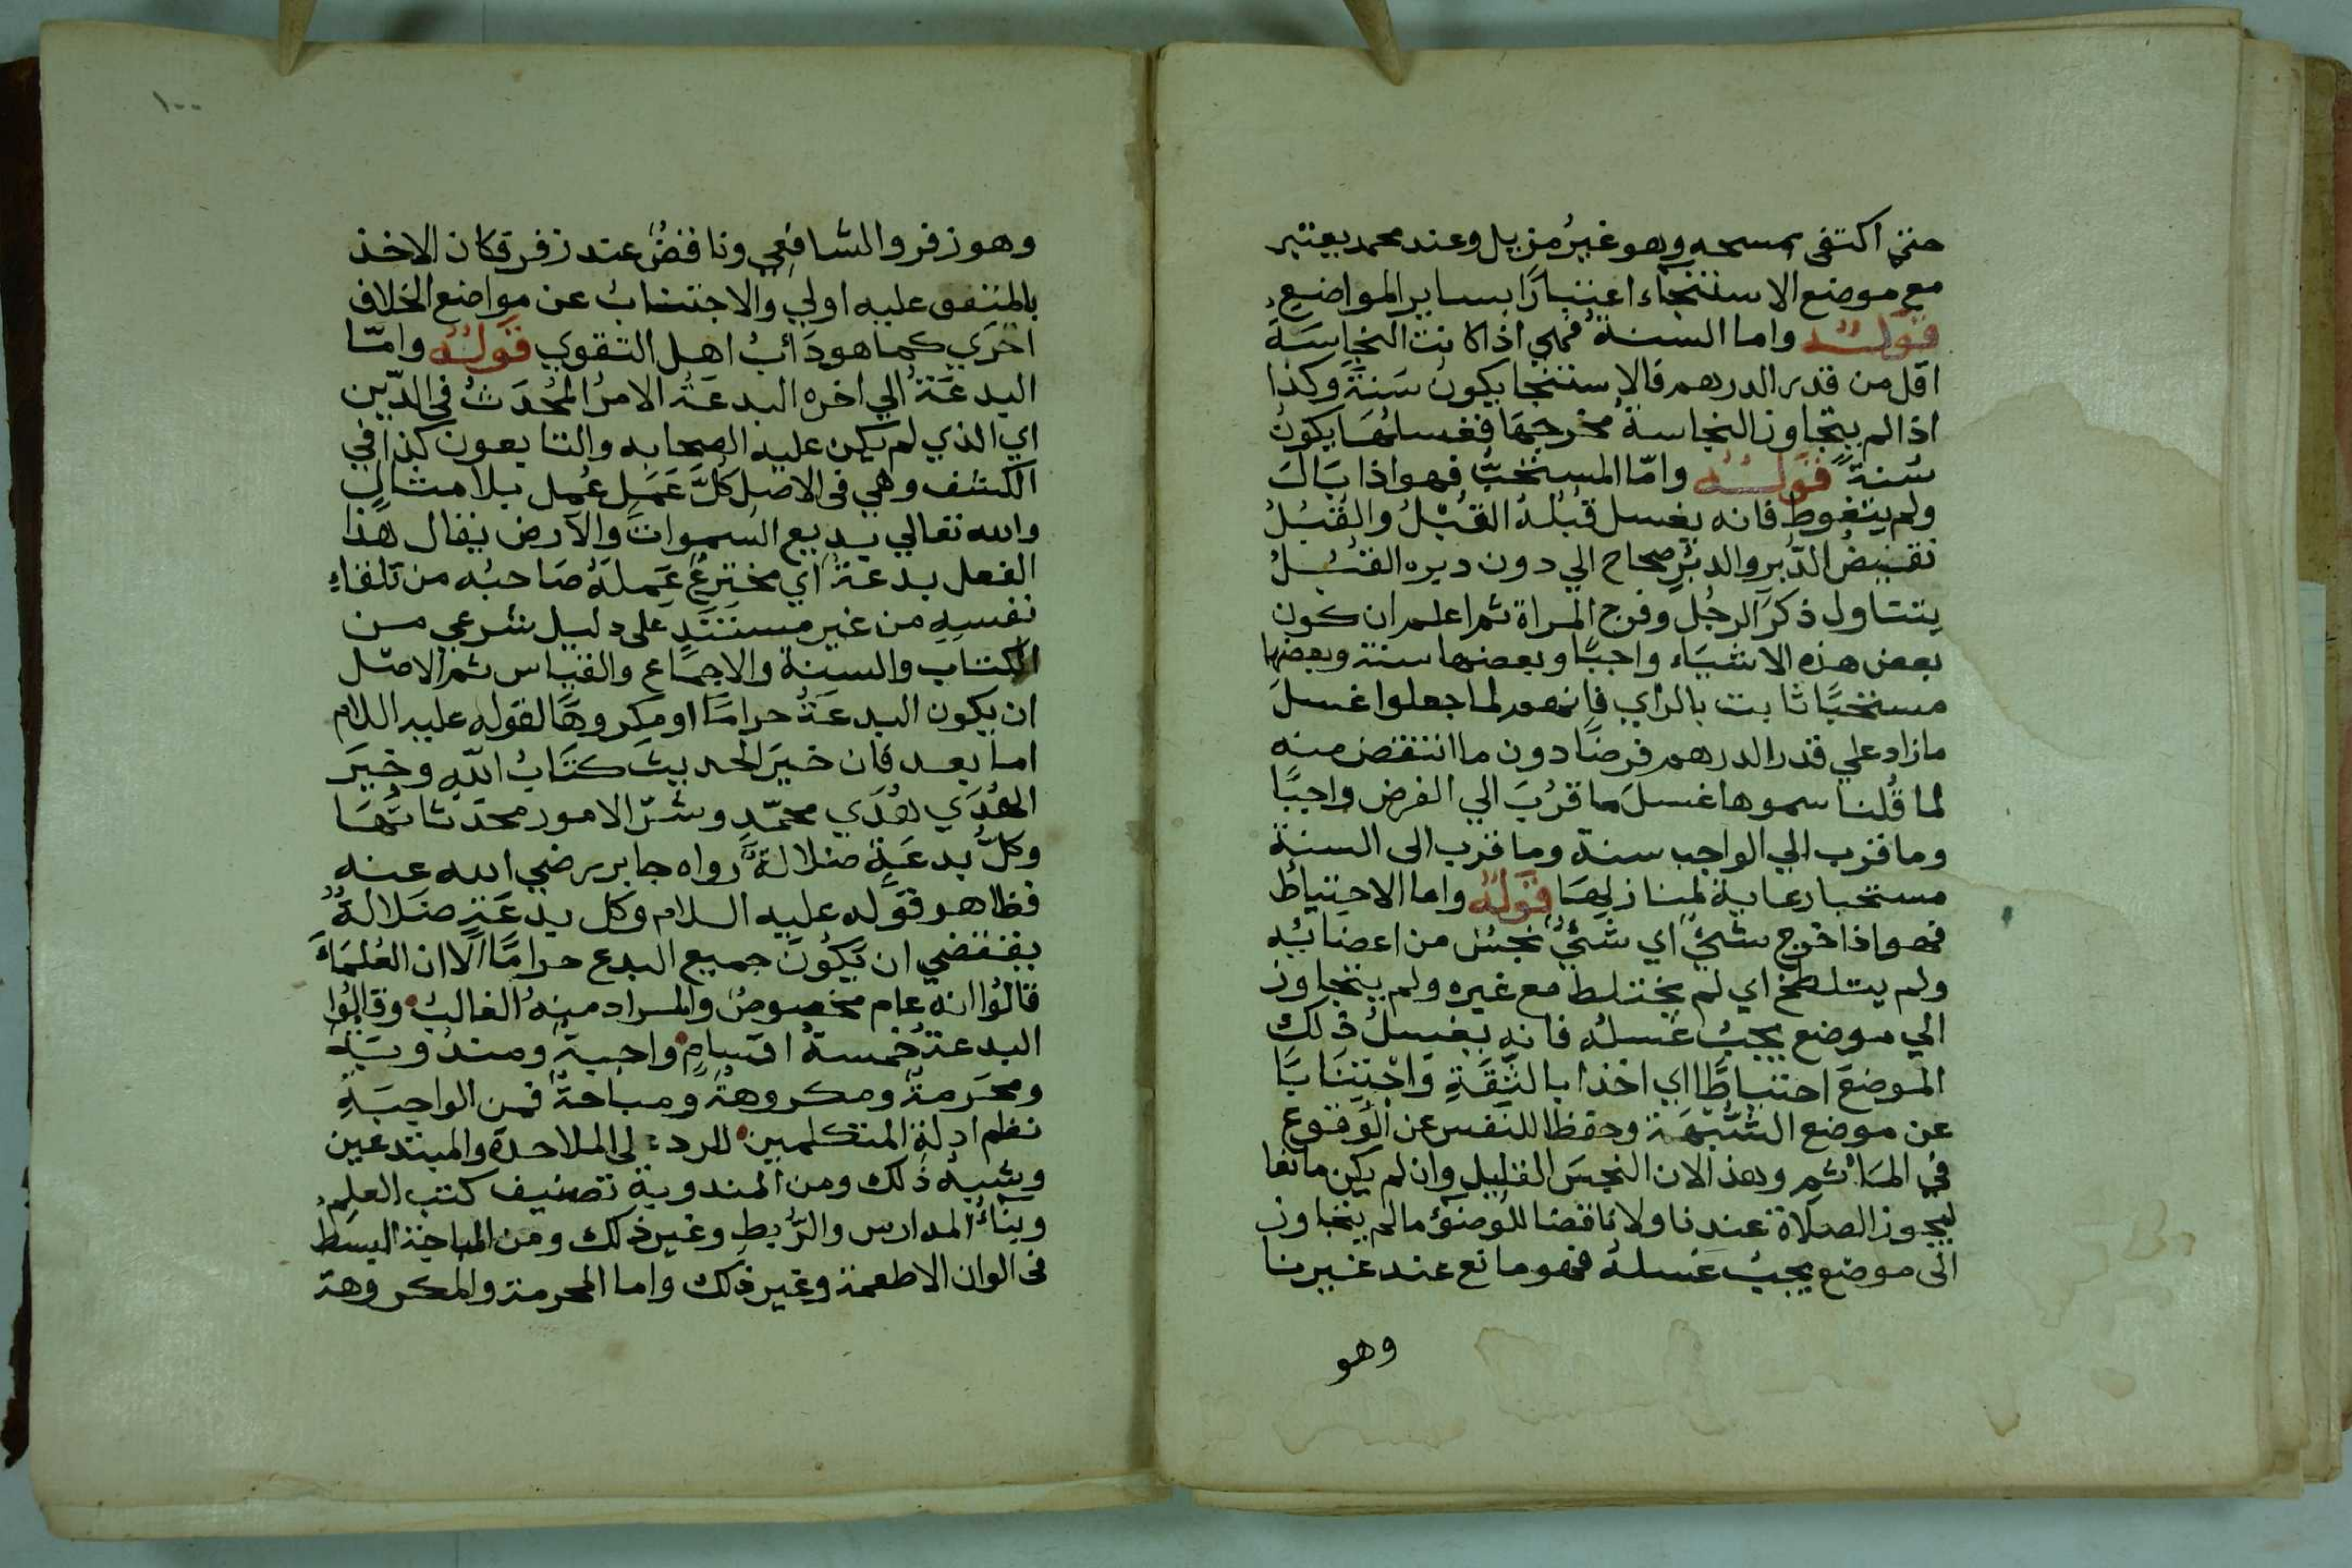 حتى اكتفى بمسحه وهو غيرُ مزيل وعند محمد يعتبر
مع موضع الاستنجاء اعتبارًا بساير المواضع
قوله واما السنة فهي اذا كانت النجاسَة
اقل من قدر الدرهم فالاستنجا يكون سَنةً وكذا
اذا لم يتجاوز النجاسة مخرجَهَا فغسلهَا يكونُ
سُنةً قوله وامّا المستحبُّ فهو اذا بَالَ
ولم يتغوط فانه يغسل قُبُلهُ القُبْلُ والقُبُلُ
نقيضُ الدُّبر والدبُرِ صحاح الي دون دبره القبُلُ
يتناول ذكرَ الرجُل وفرج المراة ثم اعلم ان كون
بعض هذه الاشيَاء واجبًا وبعضها سنة وبعضها
مستحبًا ثابت بالراي فانهم لما جعلوا غسلَ
مازاد علي قدر الدرهم فرضًا دون ما انتقض منه
لما قُلنا سموها غسلَ ما قرُبَ الي الفرض واجبًا
وما قرب الي الواجب سنة وما قرب الى السنة
مستحبا رعاية لمنازلهَا قوله واما الاحتياطُ
فهو اذا خرج شيءٌ اي شيءٌ نجسٌ من اعضائه
ولم يتلطخ اي لم يختلط مع غيره ولم يتجاوز
الي موضع يجبُ غسله فانه يغسلُ ذلك
الموضعَ احتياطًا اي اخذا بالثِّقَةِ وَاجْتِنَابًا
عن موضع الشُّبْهَة وحفظا للنفس عن الوُقوع
في المَاْثَمِ وهذا لان النجسَ القليل وان لم يكن مانعا
لجواز الصلاة عندنا ولا ناقضا للوضوْء ما لم يتجاوز
الى موضع يجبُ غسلهُ فهو مانع عند غيرنا
وهو
١٠٠
وهو زفر والشافعي وناقضٌ عند زفر فكان الاخذ
بالمتفق عليه اولي والاجتنابُ عن مواضع الخلاف
احرَي كما هو دَأبُ اهل التقوي قوله وامّا
البدعَةُ الي اخره البدعَةُ الامرُ المُحْدَثُ في الدّين
اي الذي لم يكن عليه الصحابه والتابعون كذا في
الكشف وهي في الاصل كُلُّ عَمَلٍ عُمِل بلا مثالٍ
والله تعالي بديع السموات والآرض يقال هذا
الفعل بدعَةٌ اي مخترعٌ عَملهُ صَاحبُه من تلقاءِ
نفسِهِ من غير مستَنَدٍ على دليل شرعي من
الكتاب والسنة والاجماع والقياس ثم الاصل
ان يكون البدعَةُ حرامًا او مكروهًا لقوله عليه السلام
اما بعد فان خيرَ الحديث كتابُ اللّهِ وخَيرَ
الهَدَي هَدَي محمّدٍ وشرّ الامور محدَثاتُهَا
وكلُّ بدعَةٍ ضلالةٌ رواه جابر رضي الله عنه
فظاهر قوله عليه السلام وكل بدعَةٍ ضَلالةٌ
يقتضي ان يَكُونَ جميع البدع حرامًا الّا ان العُلمَاءَ
قالُوا انه عام مخصوصٌ والمراد منه الغالبُ وقالوا
البدعة خمسةُ اقسامٍ واجبةٌ ومندوبَةٌ
ومحرمةٌ ومكروهةٌ ومباحةٌ فمن الواجبَةِ
نظم ادلة المتكلمين للرد علي الملاحدة والمبتدعين
وشبه ذلك ومن المندوبة تصنيف كتب العلم
وبناءُ المدارس والرُّبطِ وغير ذلك ومن المباحة البسطُ
في الوان الاطعمة وغير ذلك واما المحرمة والمكروهة